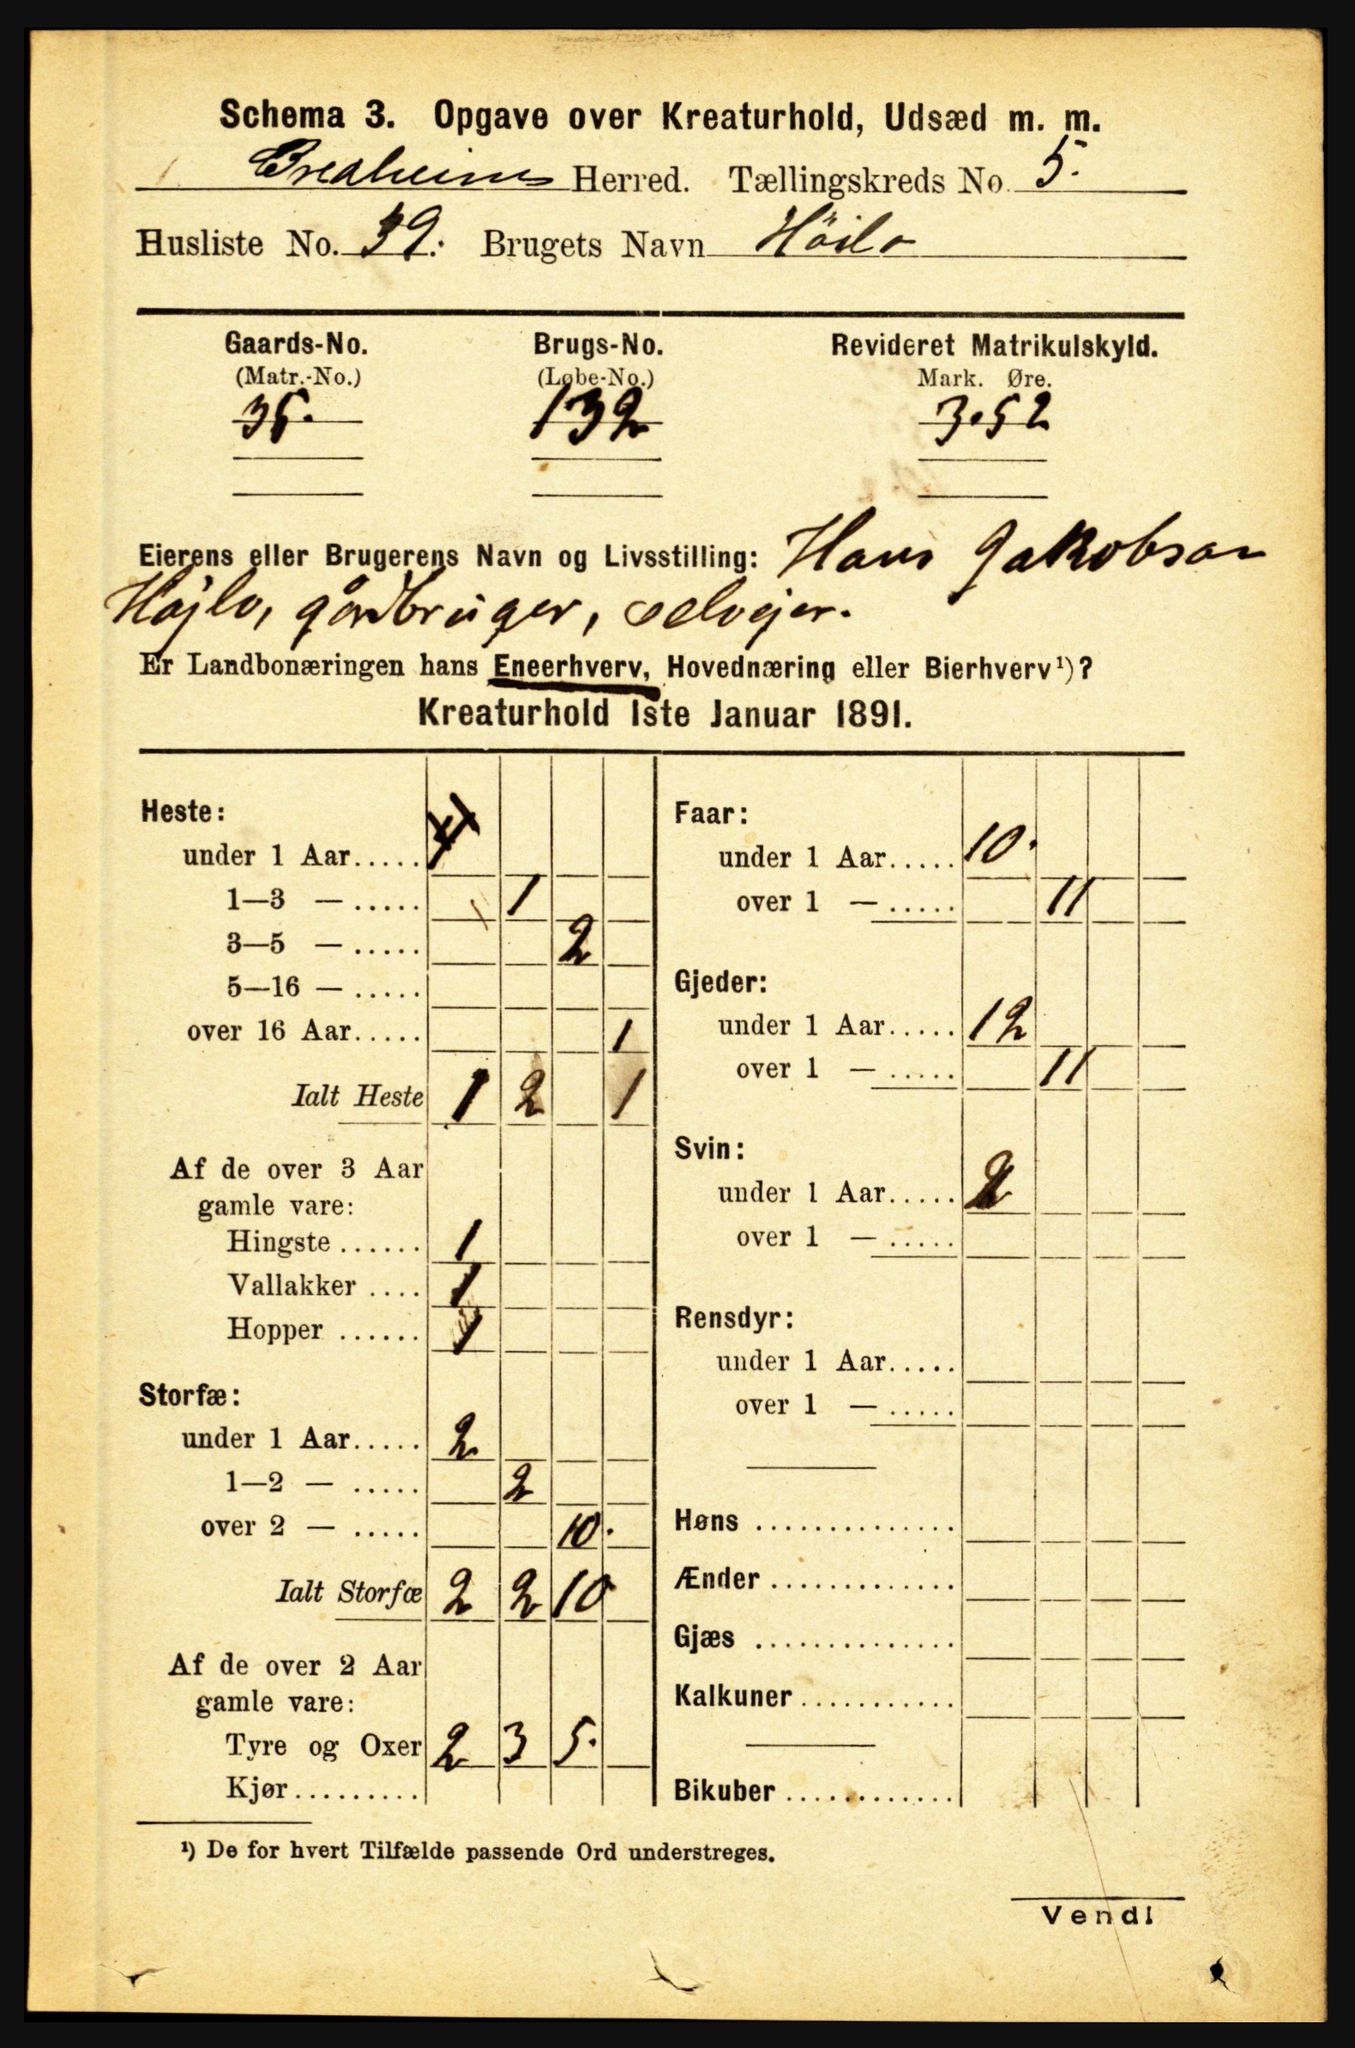 Schema 3. Opgave over Kreaturhold, Udsæd m. m.
Bredheim Herred. Tællingskreds No. 5.
Husliste No. 39. Brugets Navn Höilo
Gaards-No. Brugs-No. Revideret Matrikulskyld.
(Matr.-No.) (Løbe-No.) Mark. Øre.
35. 132 3.52
Eierens eller Brugerens Navn og Livsstilling: Hans Jakobson
Höjlo, gårdbruger, selvejer.
Er Landbonæringen hans Eneerhverv, Hovednæring eller Bierhverv¹)?
Kreaturhold 1ste Januar 1891.
Heste:
under 1 Aar.....
1—3 — ..... 1
3—5 — ..... 2
5—16 — .....
over 16 Aar..... 1
Ialt Heste 1 2 1
Af de over 3 Aar
gamle vare:
Hingste ...... 1
Vallakker .... 1
Hopper ...... 1
Storfæ:
under 1 Aar..... 2
1—2 — ..... 2
over 2 — ..... 10.
Ialt Storfæ 2 2 10
Af de over 2 Aar
gamle vare:
Tyre og Oxer 2 3 5.
Kjør.........
Faar:
under 1 Aar..... 10.
over 1 — ..... 11
Gjeder:
under 1 Aar..... 12
over 1 — ..... 11
Svin:
under 1 Aar..... 2
over 1 — .....
Rensdyr:
under 1 Aar.....
over 1 — .....
Høns ..............
Ænder .............
Gjæs ..............
Kalkuner...........
Bikuber ............
¹) De for hvert Tilfælde passende Ord understreges.
Vend!